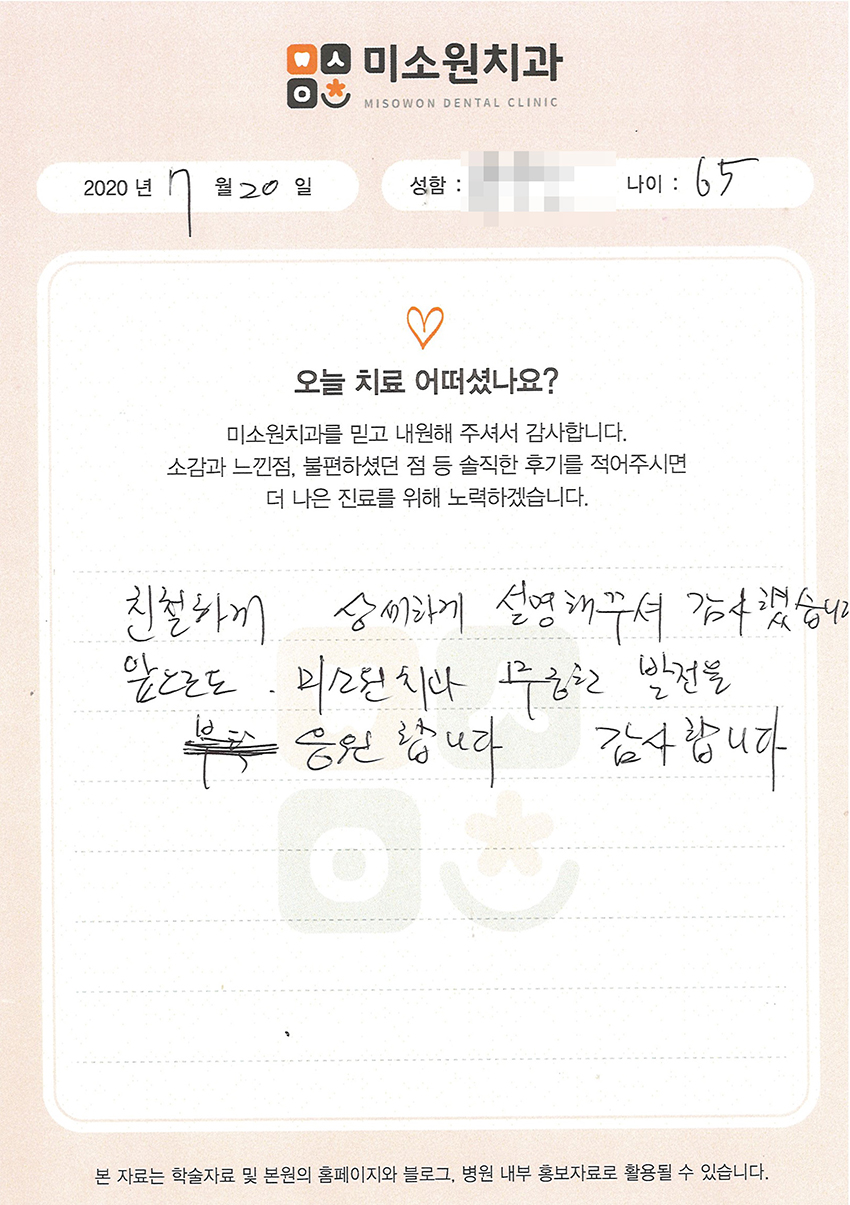 미소원치과
MISOWON DENTAL CLINIC
2020 년 7 월 20 일 성함 : 나이 : 65
오늘 치료 어떠셨나요?
미소원치과를 믿고 내원해 주셔서 감사합니다.
소감과 느낀점, 불편하셨던 점 등 솔직한 후기를 적어주시면
더 나은 진료를 위해 노력하겠습니다.
친절하게 상세하게 설명해주셔 감사했습니다
앞으로도 . 미소원치과 무궁한 발전을
부탁 응원합니다 감사합니다
본 자료는 학술자료 및 본원의 홈페이지와 블로그, 병원 내부 홍보자료로 활용될 수 있습니다.